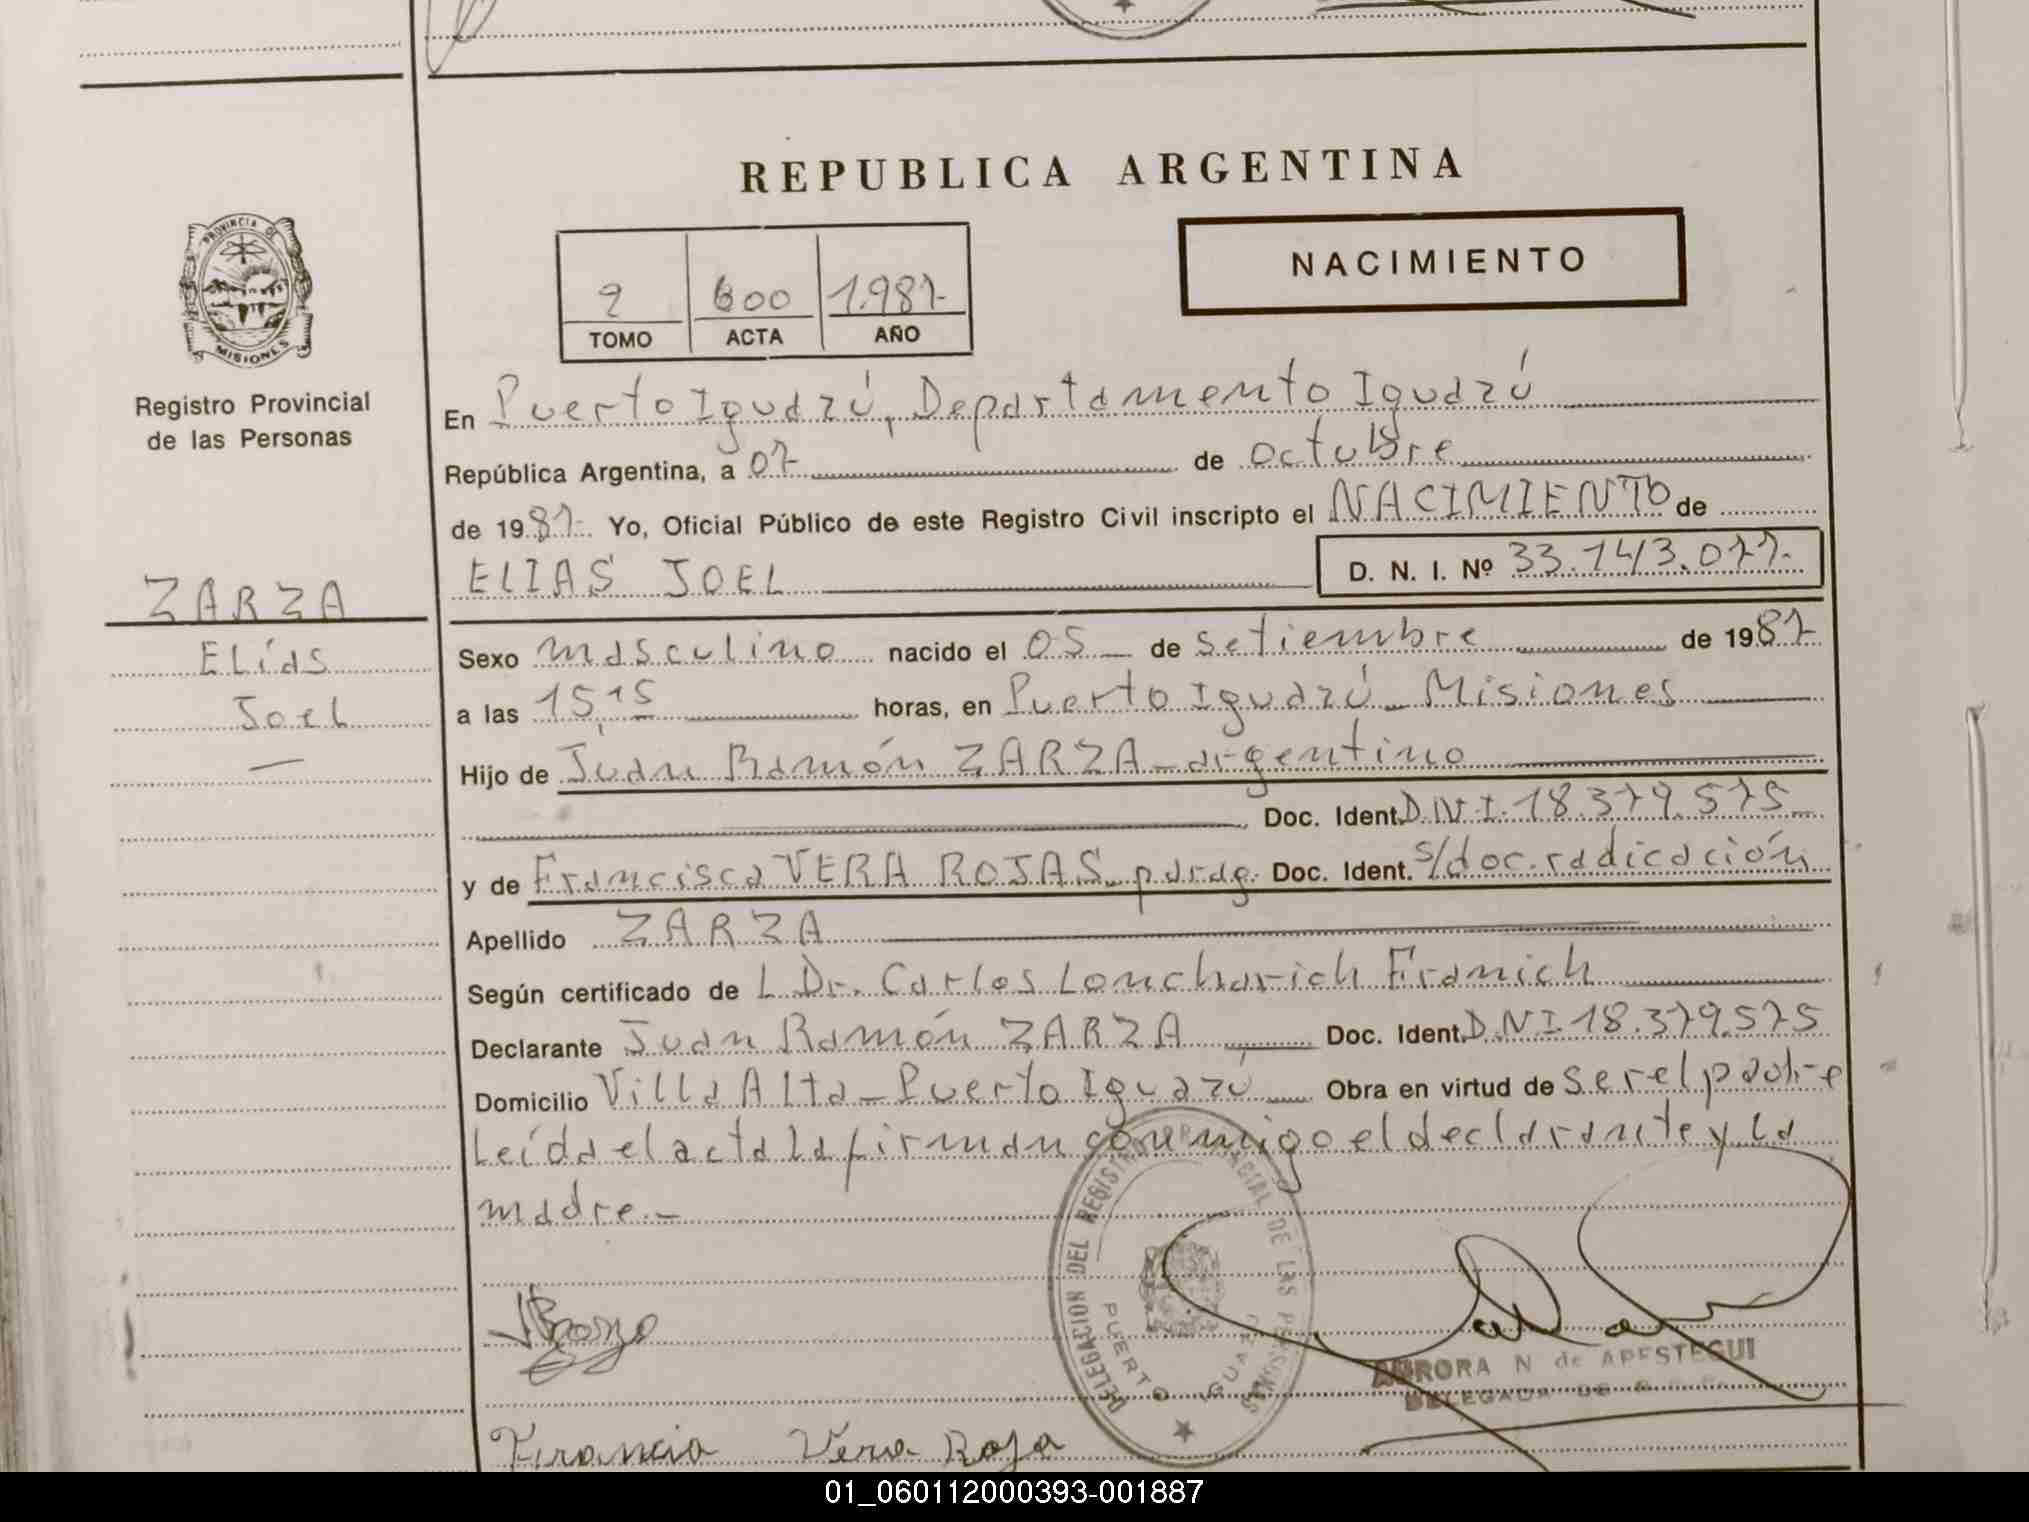 REPUBLICA ARGENTINA
NACIMIENTO
2 600 1.987-
TOMO ACTA AÑO
PROVINCIA DE
MISIONES
Registro Provincial
de las Personas
En Puerto Iguazú, Departamento Iguazú
República Argentina, a 07 de octubre
de 1987- Yo, Oficial Público de este Registro Civil inscripto el NACIMIENTO de
ELIAS JOEL D. N. I. Nº 33.143.077.-
ZARZA
Elías
Joel
Sexo masculino nacido el 05 de setiembre de 1987
a las 15,15 horas, en Puerto Iguazú - Misiones
Hijo de Juan Ramón ZARZA - argentino
Doc. Ident. D.N.I. 18.379.575
y de Francisca VERA ROJAS - parag. Doc. Ident. s/doc. radicación
Apellido ZARZA
Según certificado de L Dr. Carlos Loncharich Franich
Declarante Juan Ramón ZARZA Doc. Ident. D.N.I 18.379.575
Domicilio Villa Alta - Puerto Iguazú Obra en virtud de ser el padre
Leída el acta la firman conmigo el declarante y la
madre.-
DELEGACION DEL REGISTRO PROVINCIAL DE LAS PERSONAS
PUERTO IGUAZU
AURORA N de APESTEGUI
DELEGADA
Francia Vera Roja
01_060112000393-001887